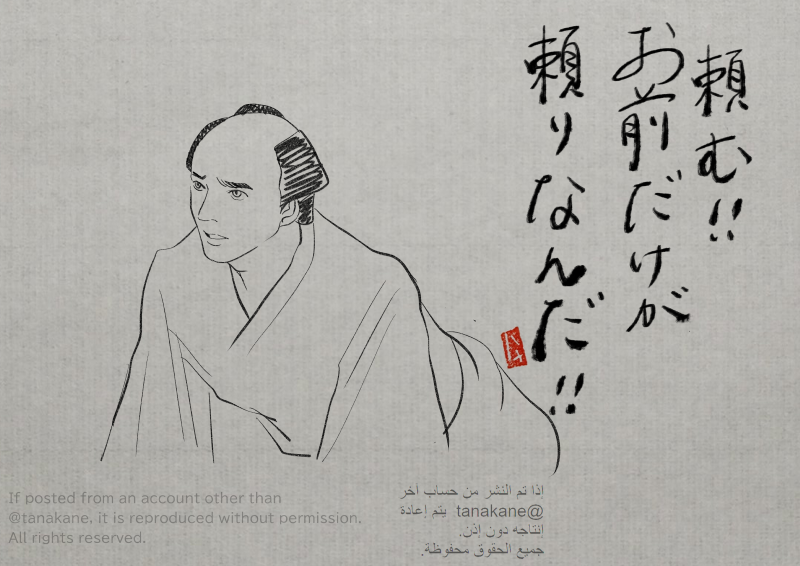 頼む!!
お前だけが
頼りなんだ!!
If posted from an account other than
@tanakane, it is reproduced without permission.
All rights reserved.
إذا تم النشر من حساب آخر
@tanakane يتم إعادة
إنتاجه دون إذن.
جميع الحقوق محفوظة.